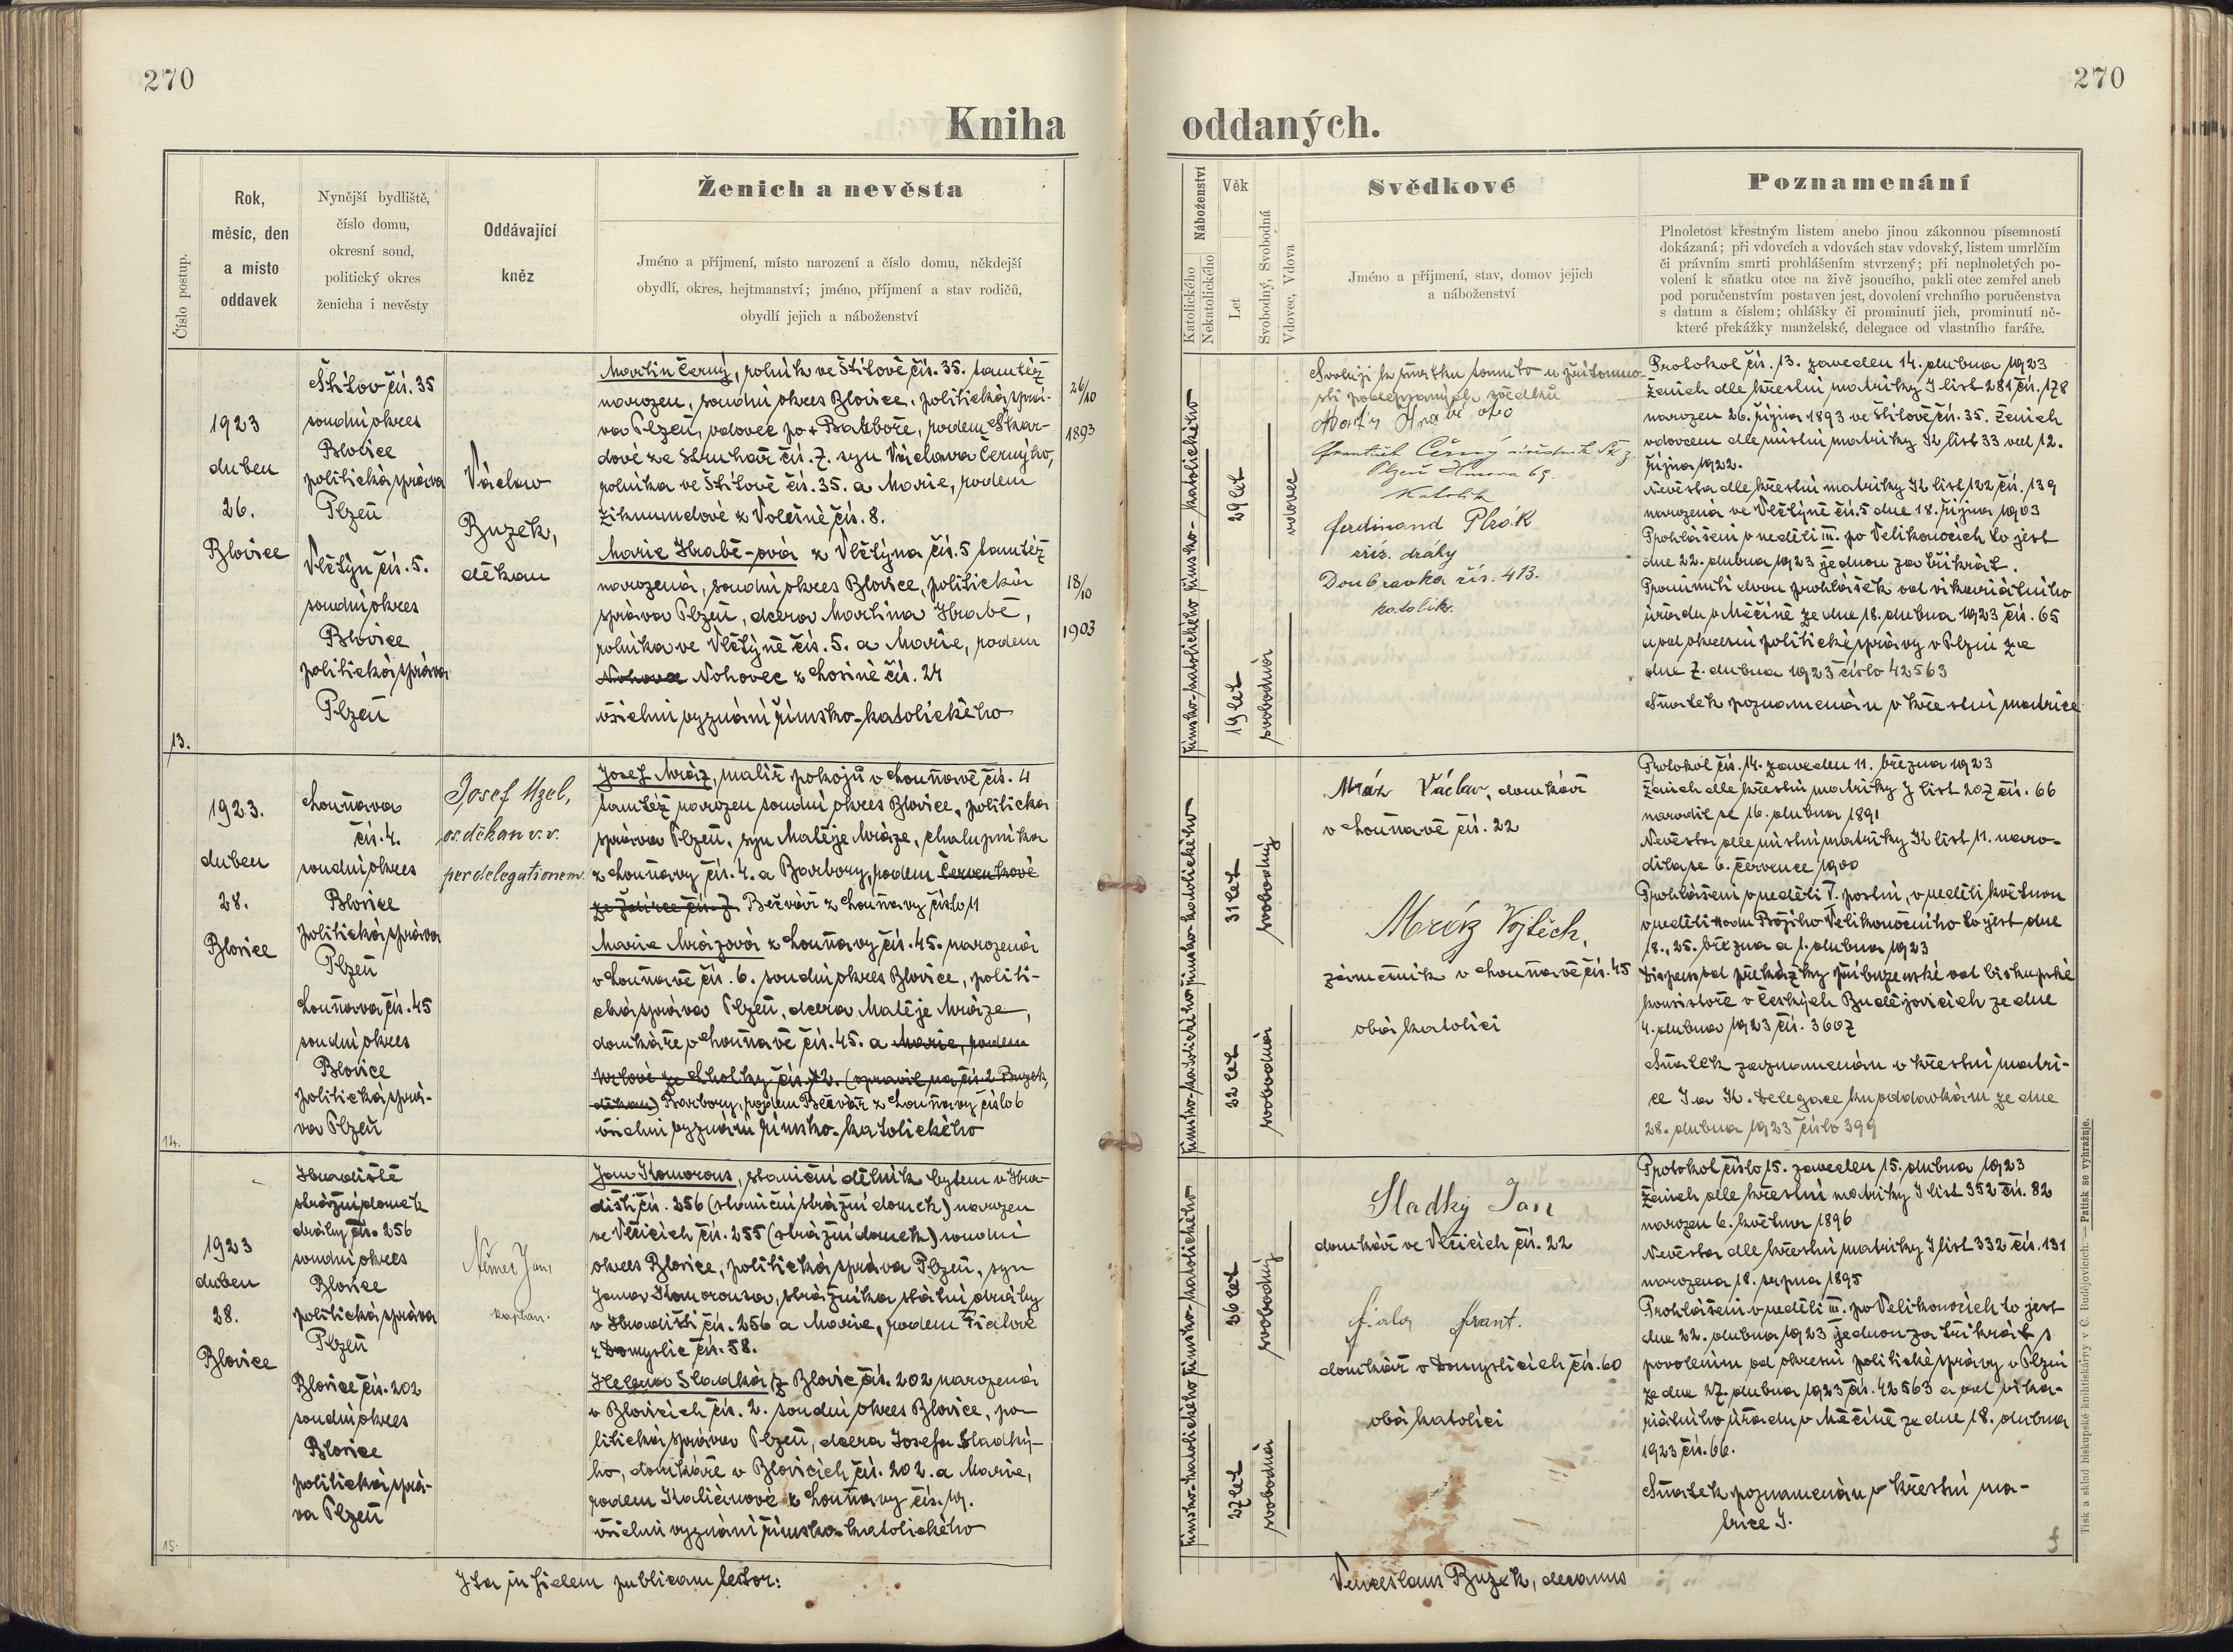 270
270
Kniha oddaných.
Číslo postup.
Rok,
měsíc, den
a místo
oddavek
Nynější bydliště,
číslo domu,
okresní soud,
politický okres
ženicha i nevěsty
Oddávající
kněz
Ženich a nevěsta
Jméno a příjmení, místo narození a číslo domu, někdejší
obydlí, okres, hejtmanství; jméno, příjmení a stav rodičů,
obydlí jejich a náboženství
Náboženství
Katolického
Nekatolického
Věk
Let
Svobodný, Svobodná
Vdovec, Vdova
Svědkové
Jméno a příjmení, stav, domov jejich
a náboženství
Poznamenání
Plnoletost křestným listem anebo jinou zákonnou písemností
dokázaná; při vdovcích a vdovách stav vdovský, listem umrlčím
či právním smrti prohlášením stvrzený; při neplnoletých po-
volení k sňatku otce na živě jsoucího, pakli otec zemřel aneb
pod poručenstvím postaven jest, dovolení vrchního poručenstva
s datum a číslem; ohlášky či prominutí jich, prominutí ně-
které překážky manželské, delegace od vlastního faráře.
13.
1923
duben
26.
Blovice
Štítov čís. 35
soudní okres
Blovice
politická správa
Plzeň
Vlčtýn čís. 5.
soudní okres
Blovice
politická správa
Plzeň
Václav
Buzek,
děkan
Martin Černý, rolník ve Štítově čís. 35. tamtéž
narozen, soudní okres Blovice, politická sprá-
va Plzeň, vdovec po + Barboře, rodem Škar-
dové ze Struhař čís. 7. syn Václava Černýho,
rolníka ve Štítově čís. 35. a Marie, rodem
Zikmundové z Volešné čís. 8.
Marie Hrabě-ová z Vlčtýna čís. 5 tamtéž
narozená, soudní okres Blovice, politická
správa Plzeň, dcera Martina Hrabě,
rolníka ve Vlčtýně čís. 5. a Marie, rodem
Nohova Nohovec z Losiné čís. 24
všichni vyznání římsko-katolického
26/10
1893
18/10
1903
římsko-katolického římsko-katolického
29 let
19 let
vdovec
svobodná
Svoluji k sňatku tomuto u přítomno-
sti podepsaných svědků
František Černý
Plzeň
Katolík
Ferdinand Plzák
zříz. dráhy
Doubravka čís. 413.
katolík.
Protokol čís. 13. zaveden 14. dubna 1923
Ženich dle křestní matriky I list 281 čís. 178
narozen 26. října 1893 ve Štítově čís. 35. Ženich
vdovcem dle místní matriky II list 33 od 12.
října 1922.
Nevěsta dle křestní matriky II list 122 čís. 139
narozená ve Vlčtýně čís. 5 dne 18. října 1903
Prohlášeni v neděli III. po Velikonocích to jest
dne 22. dubna 1923 jednou za třikrát.
Prominutí dvou prohlášek od vikariátního
úřadu v Měčíně ze dne 18. dubna 1923 čís. 65
a od okresní politické správy v Plzni ze
dne 7. dubna 1923 číslo 42563
Sňatek poznamenán v křestní matrice
14.
1923.
duben
28.
Blovice
Louňava
čís. 4.
soudní okres
Blovice
politická správa
Plzeň
Louňava čís. 45
soudní okres
Blovice
politická sprá-
va Plzeň
Josef Uzel,
os. děkan v. v.
per delegationem.
Josef Mráz, malíř pokojů v Louňavě čís. 4
tamtéž narozen soudní okres Blovice, politická
správa Plzeň, syn Matěje Mráze, chalupníka
z Louňavy čís. 4. a Barbory, rodem Červenkové
ze Ždírce čís. 7. Bečvář z Louňavy číslo 11
Marie Mrázová z Louňavy čís. 45. narozená
v Louňavě čís. 6. soudní okres Blovice, politi-
cká správa Plzeň, dcera Matěje Mráze,
domkáře v Louňavě čís. 45. a Marie, rodem
Krlové ze Lholky čís. 12. (opravil na čís. 2 Buzek,
děkan) Barbory, rodem Bečvář z Louňavy číslo 6
všichni vyznání římsko-katolického
římsko-katolického římsko-katolického
31 let
22 let
svobodný
svobodná
Mráz Václav, domkář
v Louňavě čís. 22
Mráz Vojtěch,
zámečník v Louňavě čís. 45
obá katolíci
Protokol čís. 14. zaveden 11. března 1923
Ženich dle křestní matriky I list 207 čís. 66
narodil se 16. dubna 1891
Nevěsta dle místní matriky II list 11. naro-
dila se 6. července 1900
Prohlášeni v neděli V. postní, v neděli květnou
v neděli Hodu Božího Velikonočního to jest dne
18., 25. března a 1. dubna 1923
Dispens od překážky příbuzenské od biskupské
konsistoře v Českých Budějovicích ze dne
4. dubna 1923 čís. 3607
Sňatek zaznamenán v křestní matri-
ce I a II. Delegace ku oddavkám ze dne
28. dubna 1923 číslo 399
15.
1923
duben
28.
Blovice
Hradiště
strážní domek
dráhy čís. 256
soudní okres
Blovice
politická správa
Plzeň
Blovice čís. 202
soudní okres
Blovice
politická sprá-
va Plzeň
Němec Jan,
kaplan.
Jan Komorous, staniční dělník bytem v Hra-
dišti čís. 256 (staniční strážní domek) narozen
ve Vlčicích čís. 255 (strážní domek) soudní
okres Blovice, politická správa Plzeň, syn
Jana Komorousa, strážníka státní dráhy
v Hradišti čís. 256 a Marie, rodem Fialové
z Domyslic čís. 58.
Helena Sladká z Blovic čís. 202 narozená
v Blovicích čís. 2. soudní okres Blovice, po-
litická správa Plzeň, dcera Josefa Sladký-
ho, domkáře v Blovicích čís. 202. a Marie,
rodem Kaliánové z Louňavy čís. 19.
všichni vyznání římsko-katolického
římsko-katolického římsko-katolického
26 let
27 let
svobodný
svobodná
Sladký Jan
domkář ve Vlčicích čís. 22
fiala frant.
domkář v Domyslicích čís. 60
obá katolíci
Protokol číslo 15. zaveden 15. dubna 1923
Ženich dle křestní matriky I list 352 čís. 82
narozen 6. května 1896
Nevěsta dle křestní matriky I list 332 čís. 131
narozena 18. srpna 1895
Prohlášeni v neděli III. po Velikonocích to jest
dne 22. dubna 1923 jednou za třikrát s
povolením od okresní politické správy v Plzni
ze dne 27. dubna 1923 čís. 42563 a od vika-
riátního úřadu v Měčíně ze dne 18. dubna
1923 čís. 66.
Sňatek poznamenán v křestní ma-
trice I.
Ita in fidem publicam testor:
Venceslaus Buzek, decanus
Tisk a sklad biskupské knihtiskárny v Č. Budějovicích. — Patisk se vyhražuje.